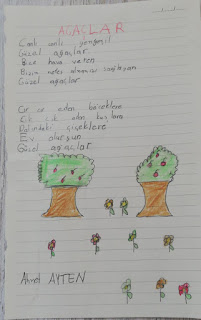 AĞAÇLAR
Canlı canlı yemyeşil
Güzel ağaçlar
Bize hava veren
Bizim nefes almamızı sağlayan
Güzel ağaçlar
eden böceklere
Cik cik eden kuşlara
Dalındaki çiçeklere
Ev olursun
Güzel ağaçlar
Ahmet AYTEN